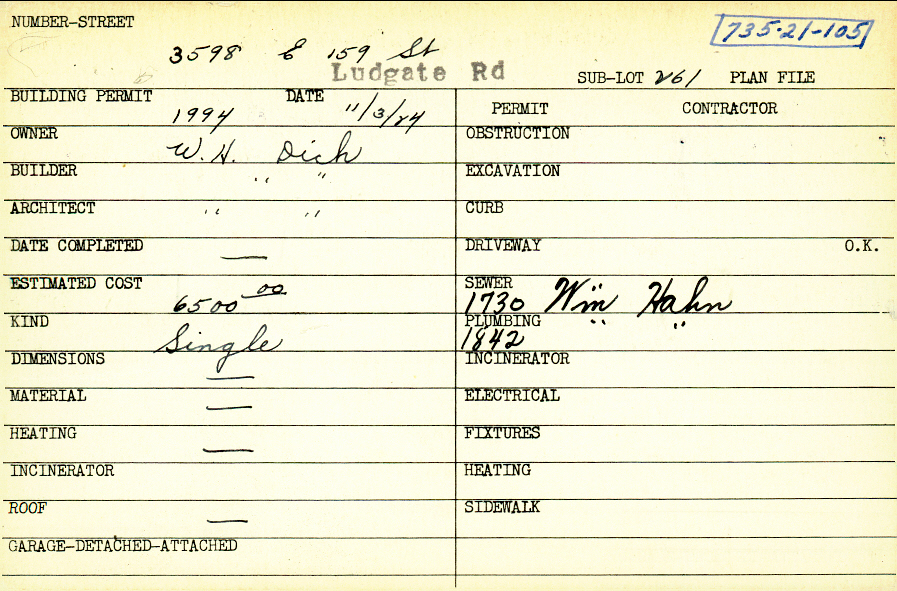 NUMBER-STREET
735-21-105
3598 E 159 St
Ludgate Rd
SUB-LOT 261 PLAN FILE
BUILDING PERMIT 1994 DATE 11/3/24
PERMIT CONTRACTOR
OWNER W. H. Dich
OBSTRUCTION
BUILDER " "
EXCAVATION
ARCHITECT " "
CURB
DATE COMPLETED —
DRIVEWAY O.K.
ESTIMATED COST 6500 00
SEWER 1730 Wm Hahn
KIND Single
PLUMBING 1842 " "
DIMENSIONS —
INCINERATOR
MATERIAL —
ELECTRICAL
HEATING —
FIXTURES
INCINERATOR
HEATING
ROOF —
SIDEWALK
GARAGE-DETACHED-ATTACHED